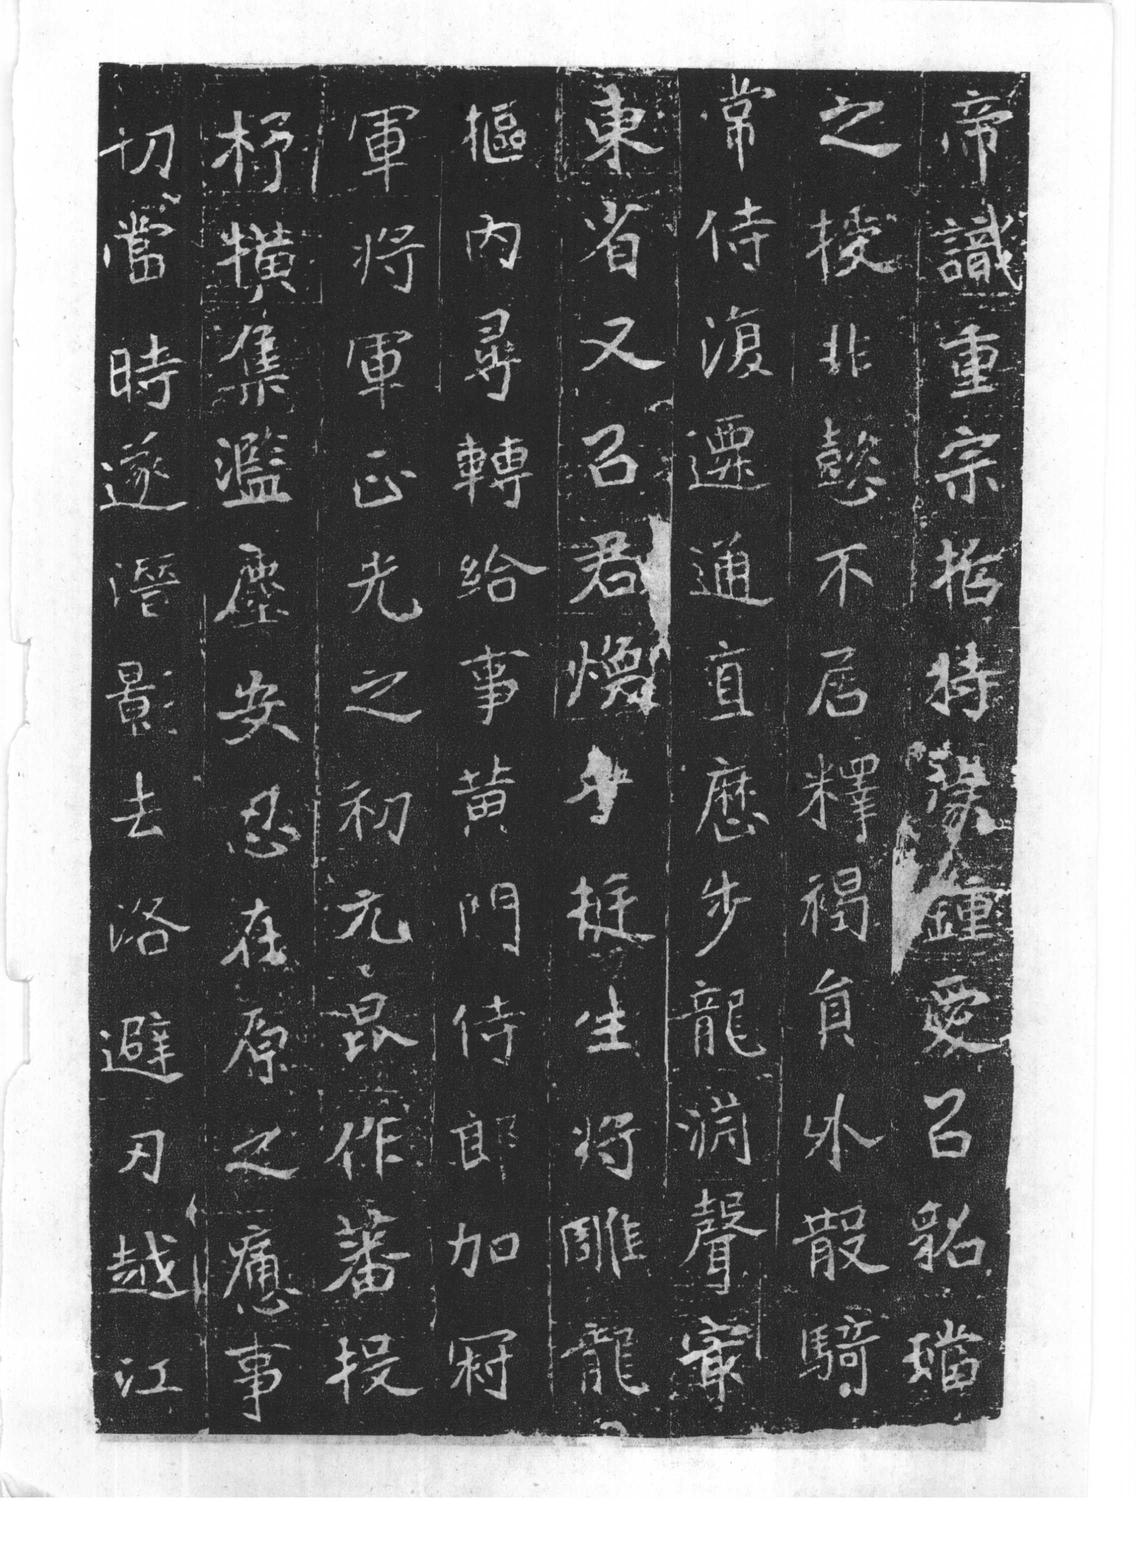 帝識重宗哲特蒙鍾愛以貂璫
之授非懿不居釋褐員外散騎
常侍復遷通直歷步龍淵聲寂
東省又以君煥乎挺生將雕龍
樞內尋轉給事黃門侍郎加冠
軍將軍正光之初元昆作蕃投
杼橫集濫塵安忍在原之痛事
切當時遂潛影去洛避刃越江